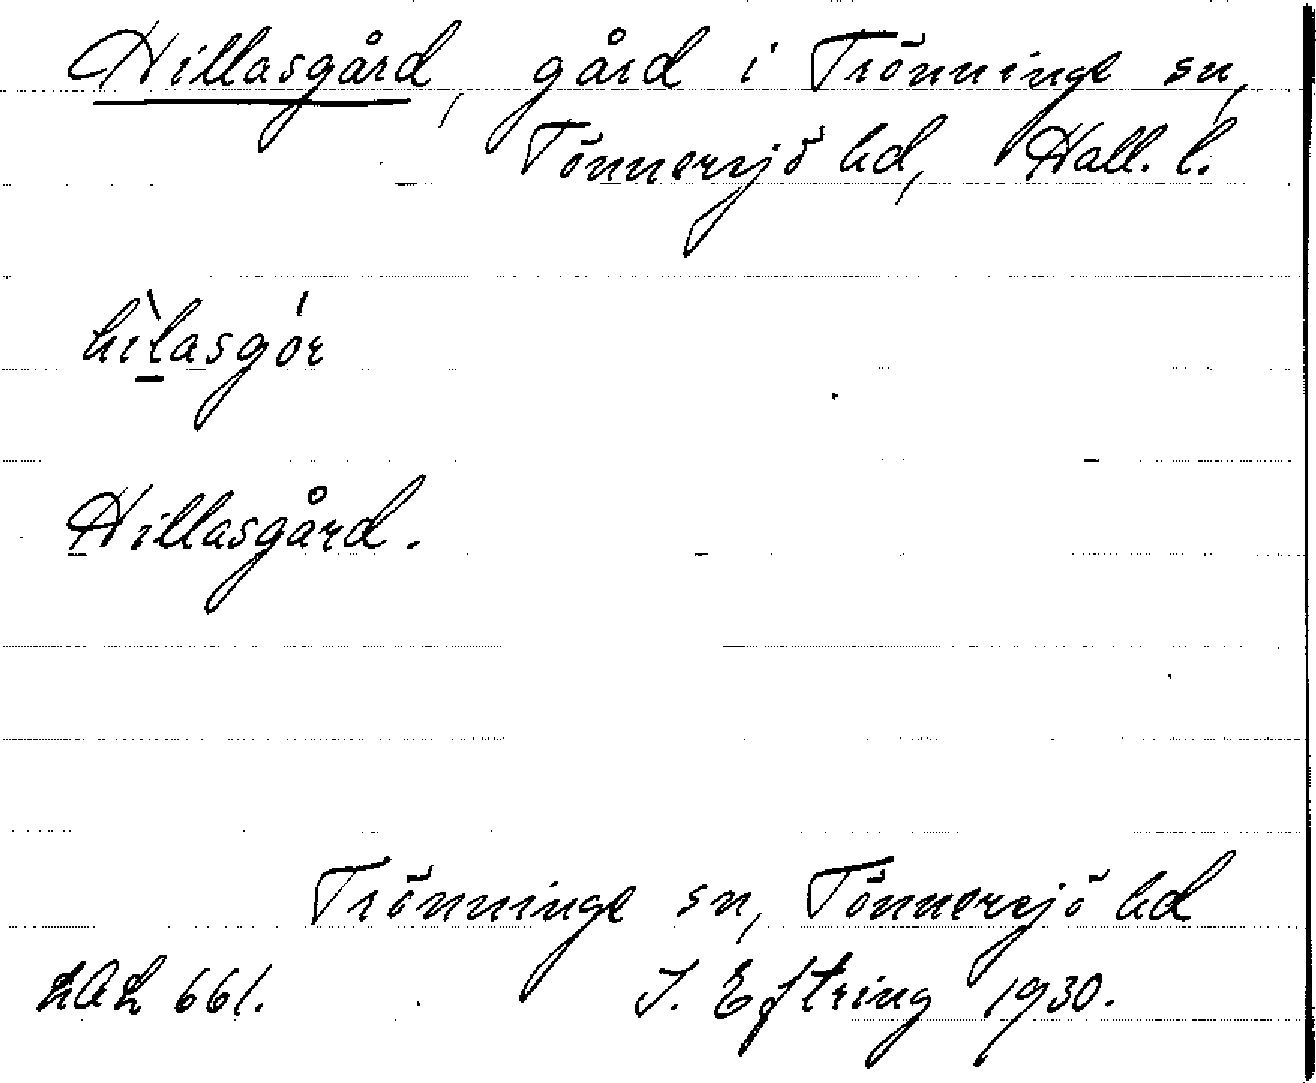 Hillasgård, gård i Trönninge sn,
Tönnersjö hd, Hall. l.
hìlasgór
Hillasgård.
Trönninge sn, Tönnersjö hd
LAL 661. I. Eftring 1930.